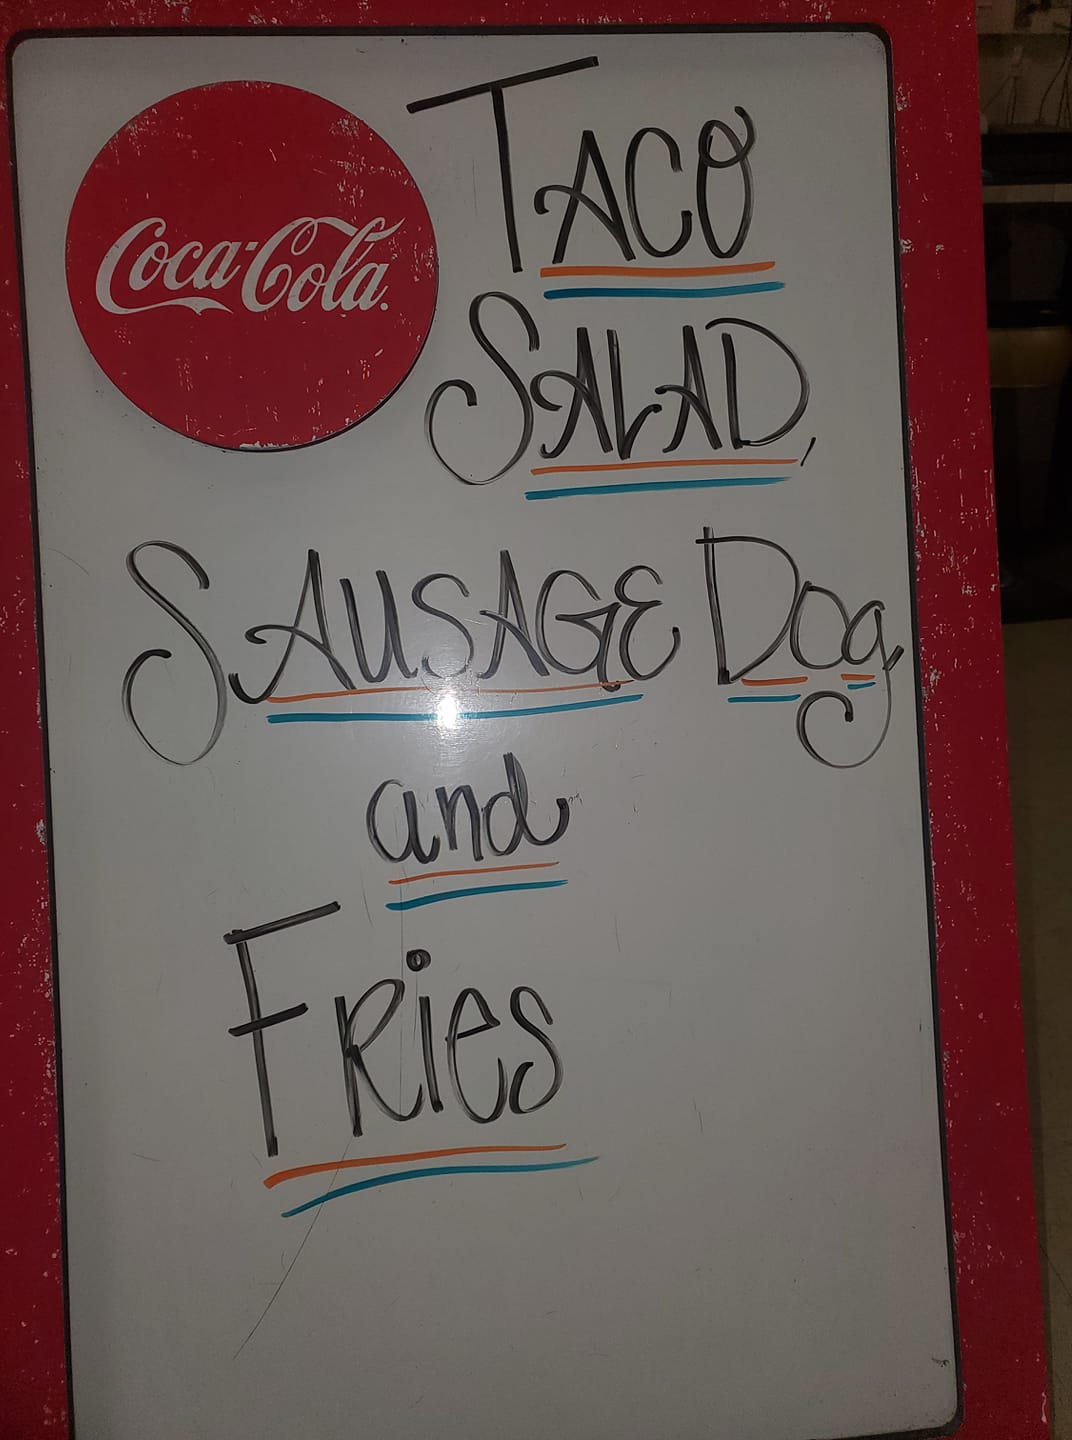 Coca-Cola
TACO
SALAD,
SAUSAGE Dog,
and
FRies